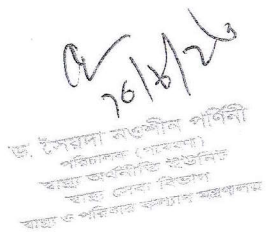 ১৬/৮/২৩
ড. সৈয়দা নওশীন পর্ণিনী
পরিচালক (গবেষণা)
স্বাস্থ্য অর্থনীতি ইউনিট
স্বাস্থ্য সেবা বিভাগ
স্বাস্থ্য ও পরিবার কল্যাণ মন্ত্রণালয়